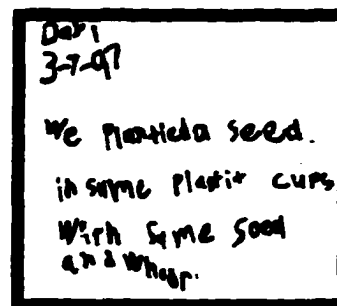 Dari
3-7-97
We Planticd a seed.
in some Plastit cups,
With some sood
and